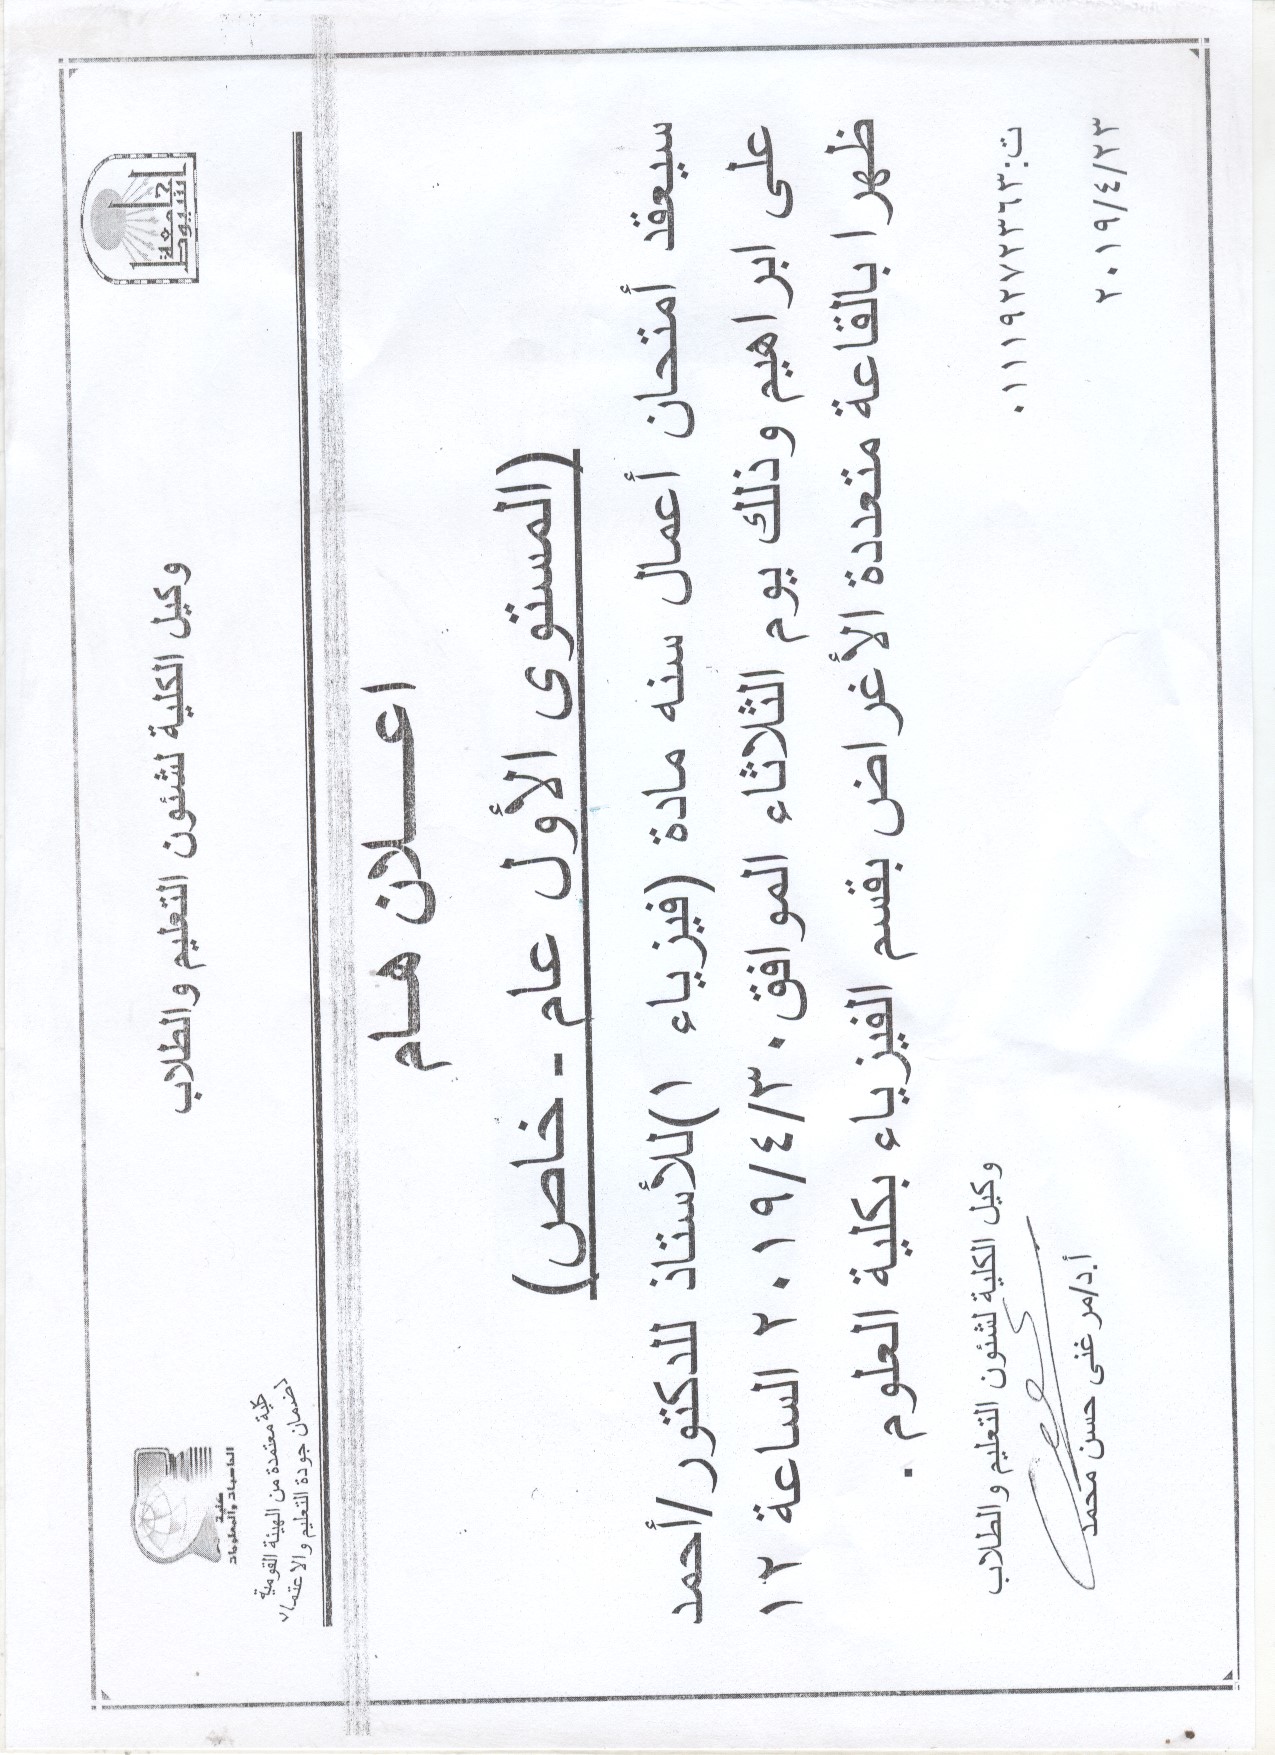 جامعة
أسيوط
وكيل الكلية لشئون التعليم والطلاب
كلية
الحاسبات والمعلومات
كلية معتمدة من الهيئة القومية
لضمان جودة التعليم والاعتماد
اعــلان هـام
(المستوى الأول عام - خاص)
سيعقد أمتحان أعمال سنه مادة (فيزياء ١)للأستاذ للدكتور/أحمد
على ابراهيم وذلك يوم الثلاثاء الموافق ٢٠١٩/٤/٣٠ الساعة ١٢
ظهرا بالقاعة متعددة الأغراض بقسم الفيزياء بكلية العلوم .
وكيل الكلية لشئون التعليم والطلاب
أ.د/مرغنى حسن محمد
ت:٠١١١٩٢٧٢٣٦٣
٢٠١٩/٤/٢٣